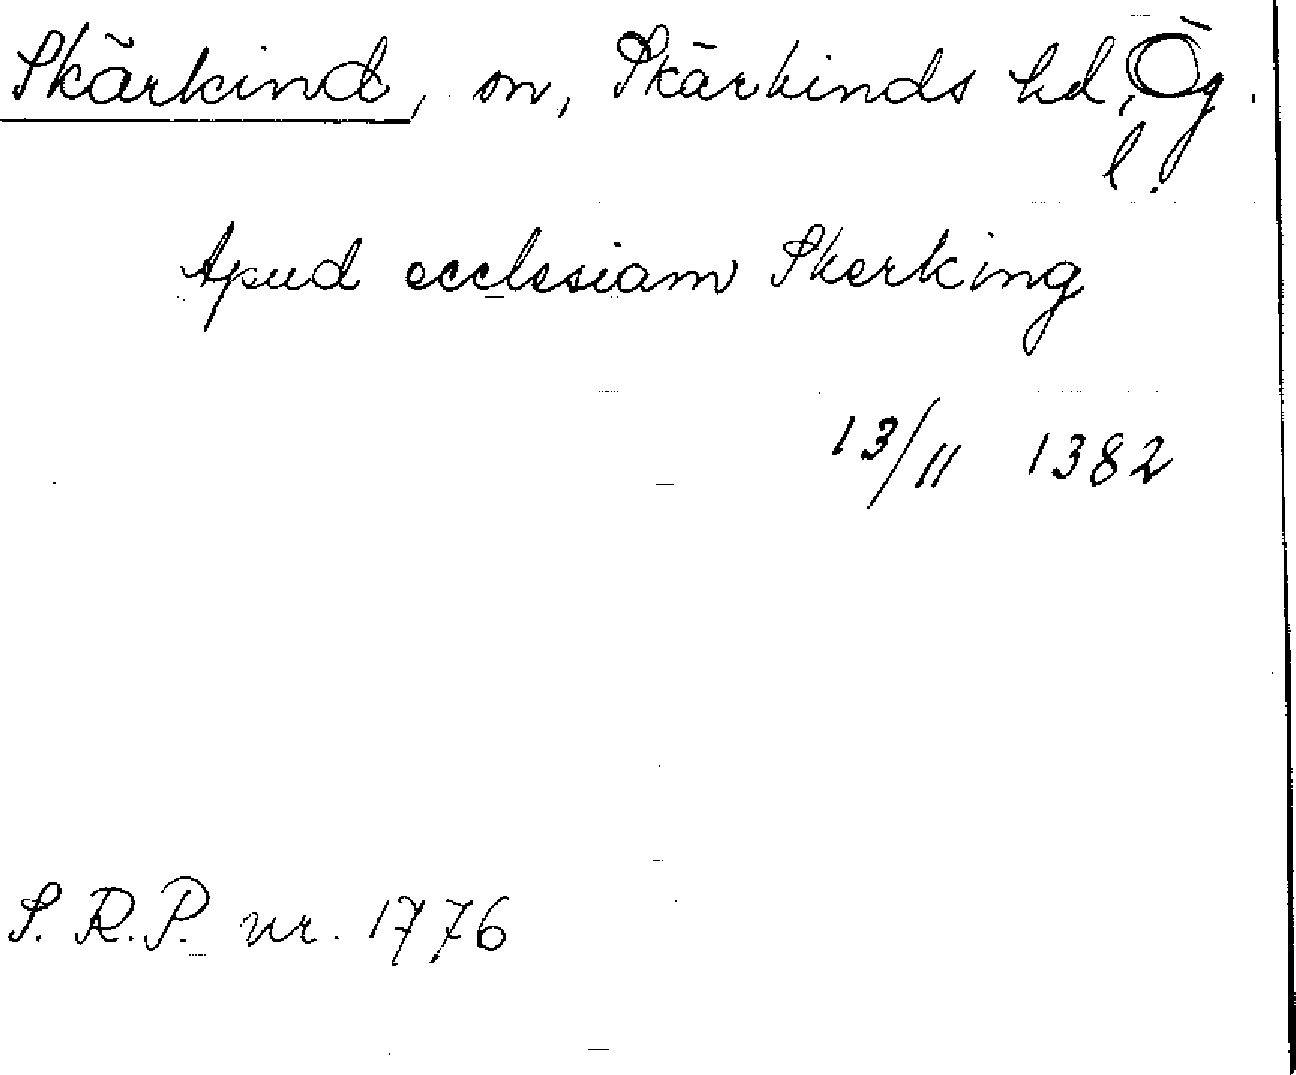 Skärkind, sn, Skärkinds hd, Ög.
l.
Apud ecclesiam Skerking
13/11 1382
S.R.P. nr. 1776